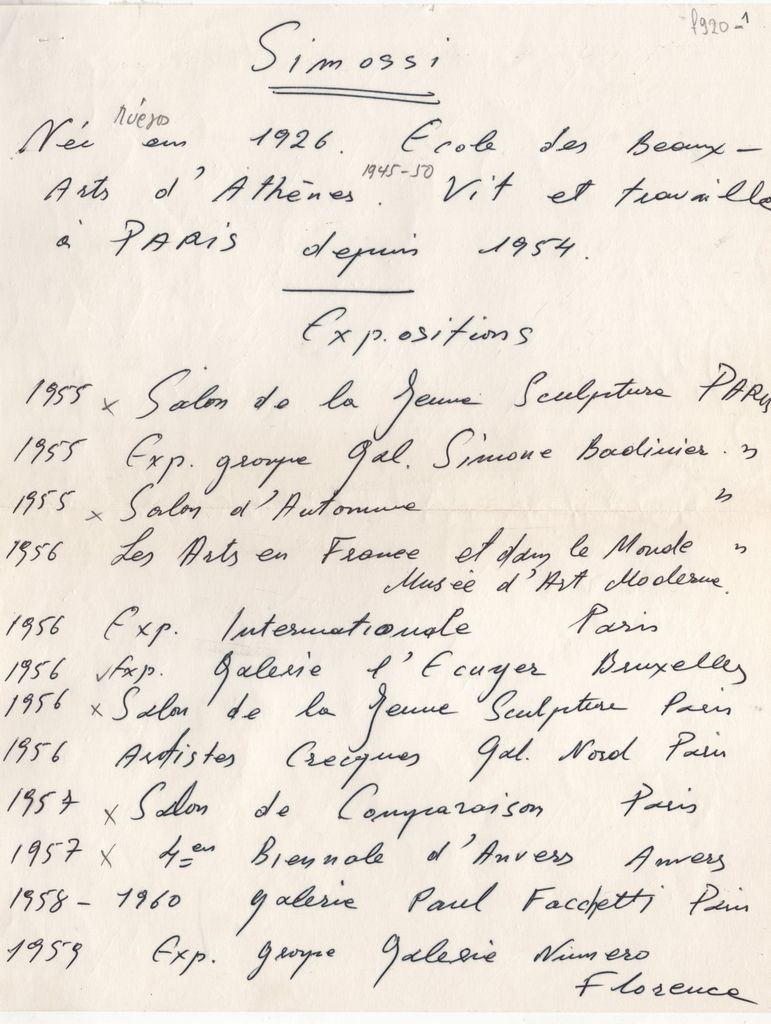 1920-1
Simossi
Née en 1926. Ecole des Beaux-
Arts d'Athènes 1945-50. Vit et travaille
à PARIS depuis 1954.
Expositions
1955 x Salon de la Jeune Sculpture PARIS
1955 Exp. groupe Gal. Simone Badinier. "
1955 x Salon d'Automne "
1956 Les Arts en France et dans le Monde "
Musée d'Art Moderne.
1956 Exp. Internationale Paris
1956 Exp. Galerie l'Ecuyer Bruxelles
1956 x Salon de la Jeune Sculpture Paris
1956 Artistes Crecques Gal. Nord Paris
1957 x Salon de Comparaison Paris
1957 x 4en Biennale d'Anvers Anvers
1958-1960 Galerie Paul Facchetti Paris
1959 Exp. groupe Galerie Numero
Florence